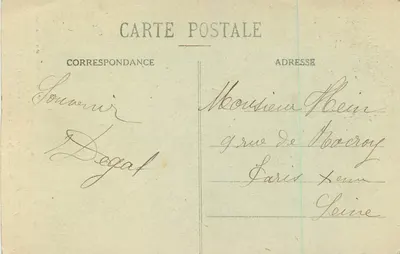 CARTE POSTALE
CORRESPONDANCE
ADRESSE
Souvenir
Degat
Monsieur Hein
9 rue de Rocroy
Paris Xeme
Seine